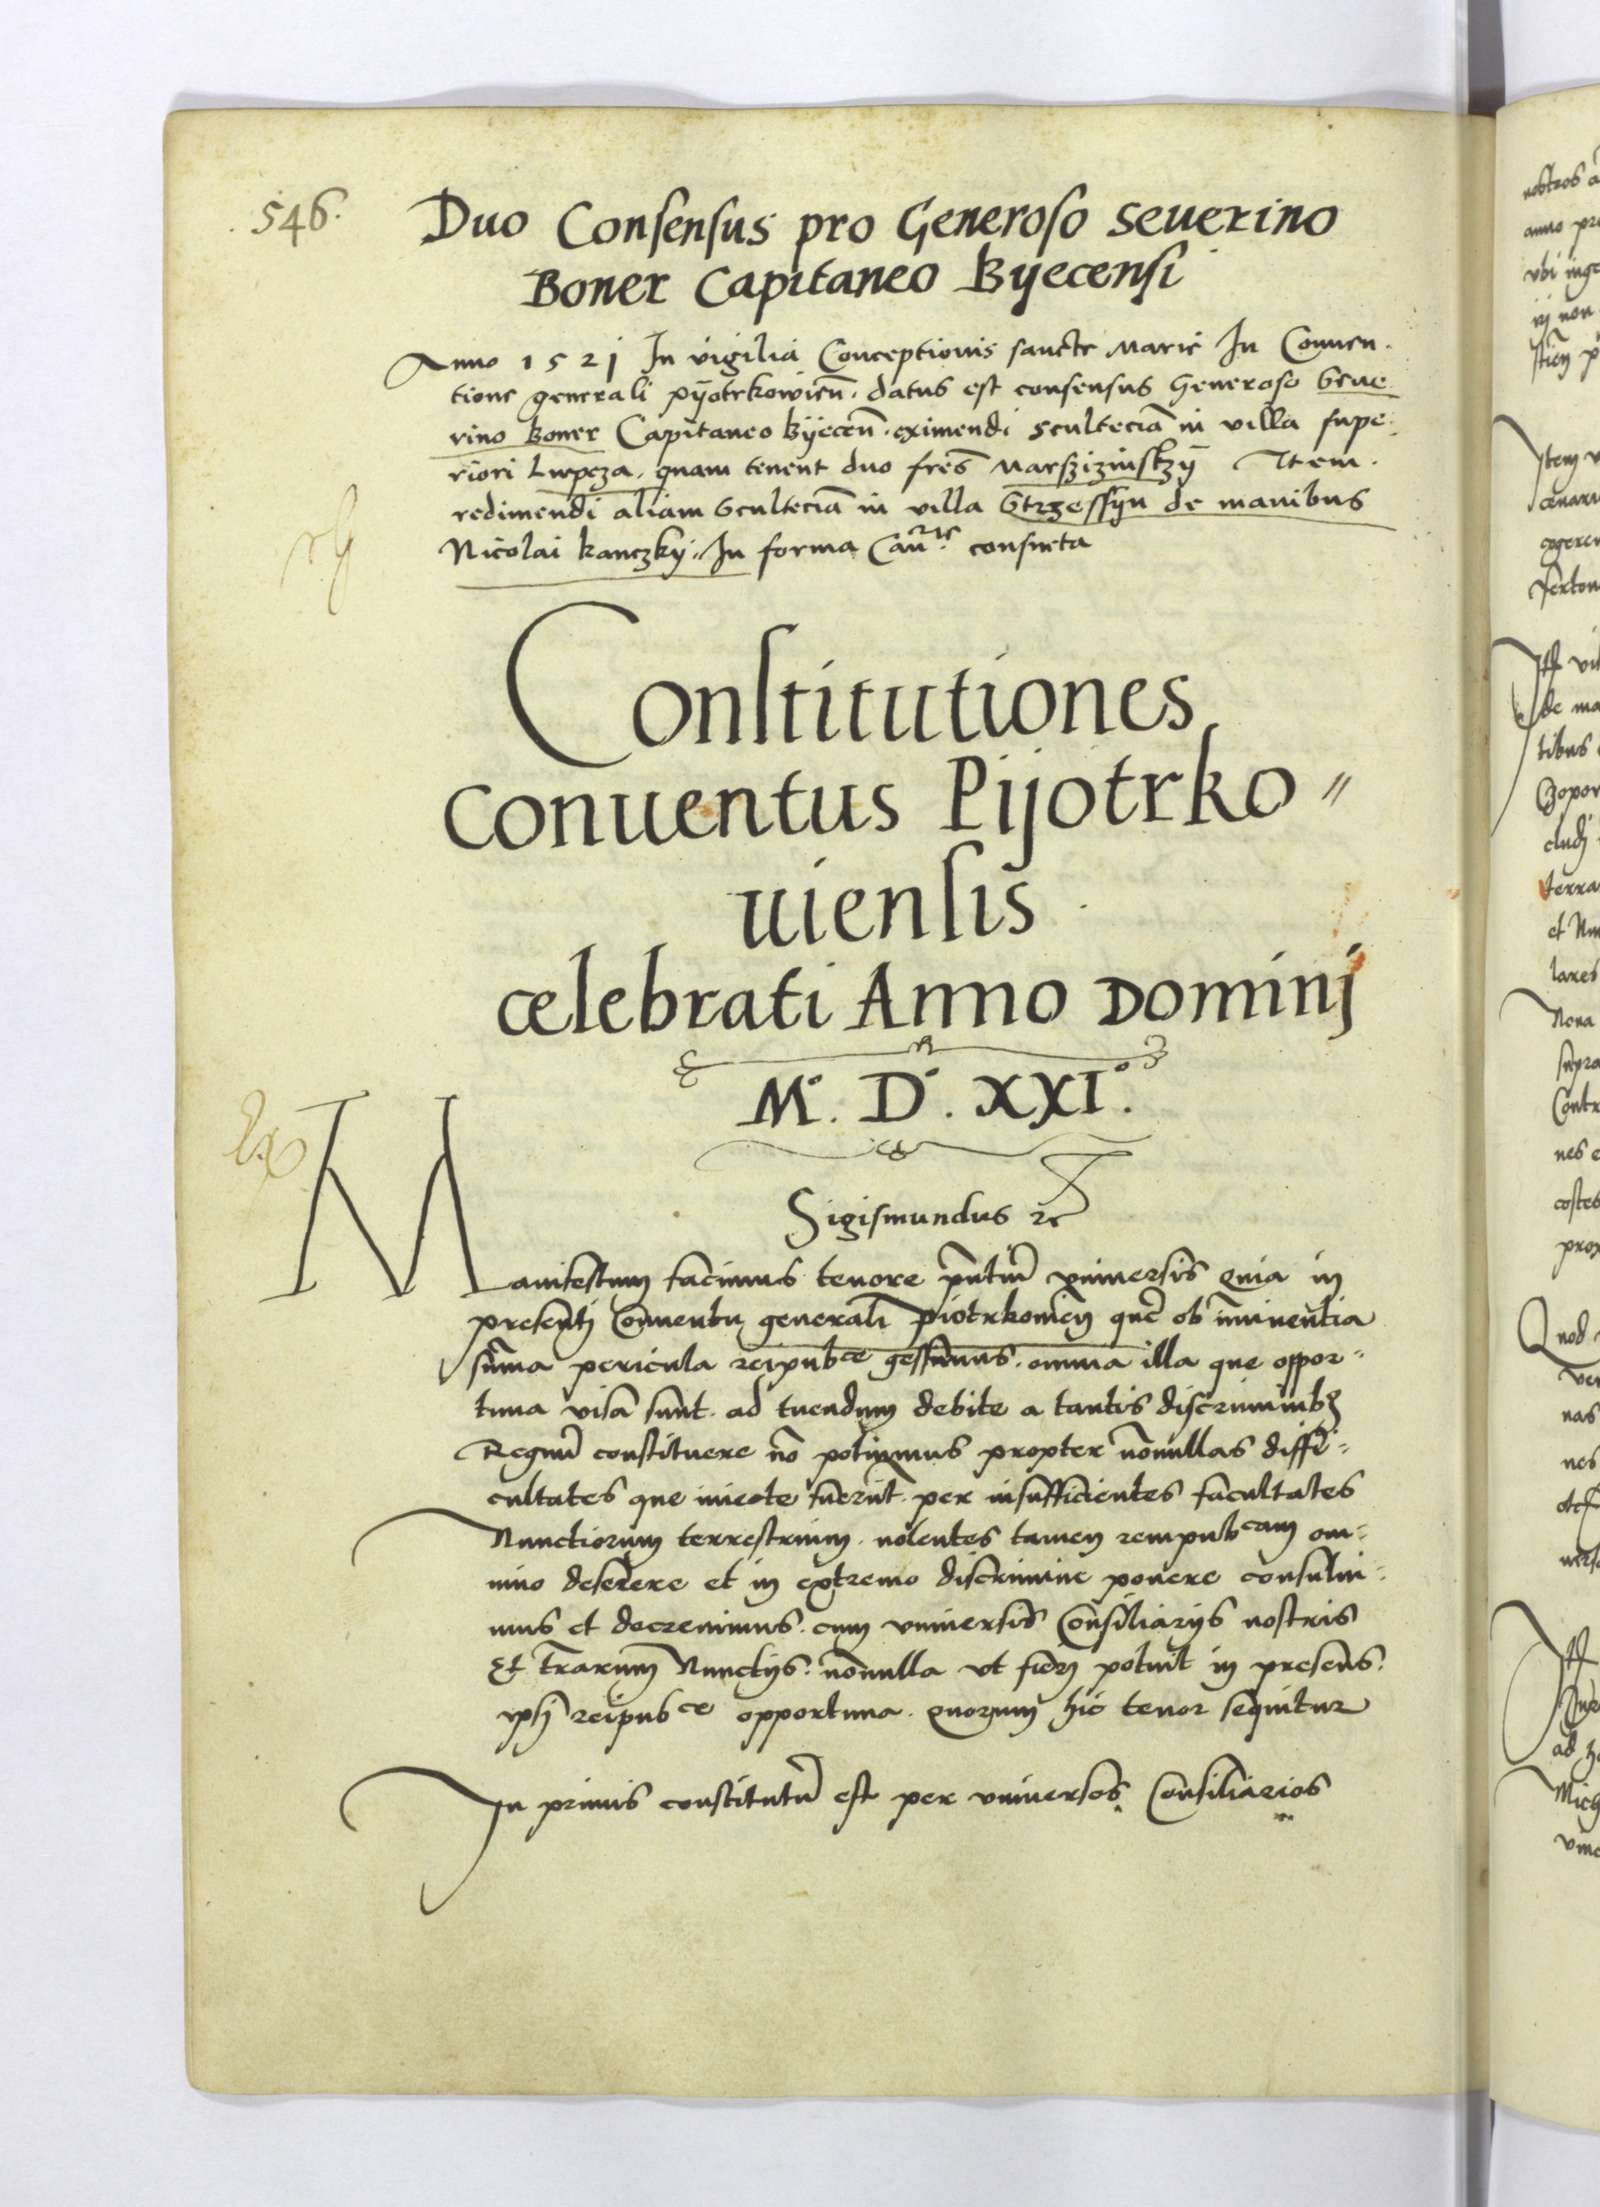 546.
Duo Consensus pro Generoso Seuerino
Boner Capitaneo Byecensi
Anno 1521 In vigilia Conceptionis sancte Marie In Conuen-
tione generali pyotrkowieñ. datus est consensus Generoso Seue-
rino Boner Capitaneo byeceñ. eximendi sculteciã in villa supe-
riori Lwpcza. quam tenent duo fres̃ Marszizinskzy Item.
redimendi aliam sculteciã in villa Strzessyn de manibus
Nicolai kanczky. In forma Canr̃ie consueta
Constitutiones
Conuentus Pijotrko=
uiensis
celebrati Anno Dominj
M°. D°. XXI°.
Sigismundus &c
Manifestum facimus tenore pñtiũ vniuersis Quia in
presentj Conuentu generali piotrkouieñ quẽ ob iminentia
sũma pericula reipubce gessimus. omnia illa que oppor=
tuna visa sunt. ad tuendum debite a tantis discriminibꝫ
Regnũ constituere nõ potuimus propter nõnullas diffi=
cultates que iniecte fuerũt. per insufficientes facultates
Nunctiorum terrestrium. nolentes tamen rempubcam om=
nino deserere et in extremo discrimine ponere consului=
mus et decreuimus. cum vniuersis Consiliarijs nostris
Et tr̃arum Nunctijs. nõnulla vt fierj potuit in presens.
ipsi reipubce opportuna. quorum hic tenor sequitur
In primis constitutũ est per vniuersos Consiliarios